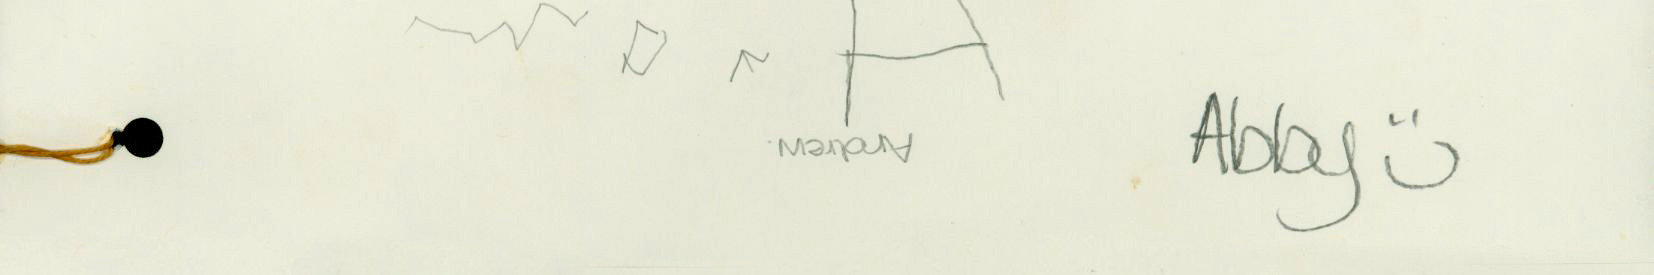 Andrew.
Abby